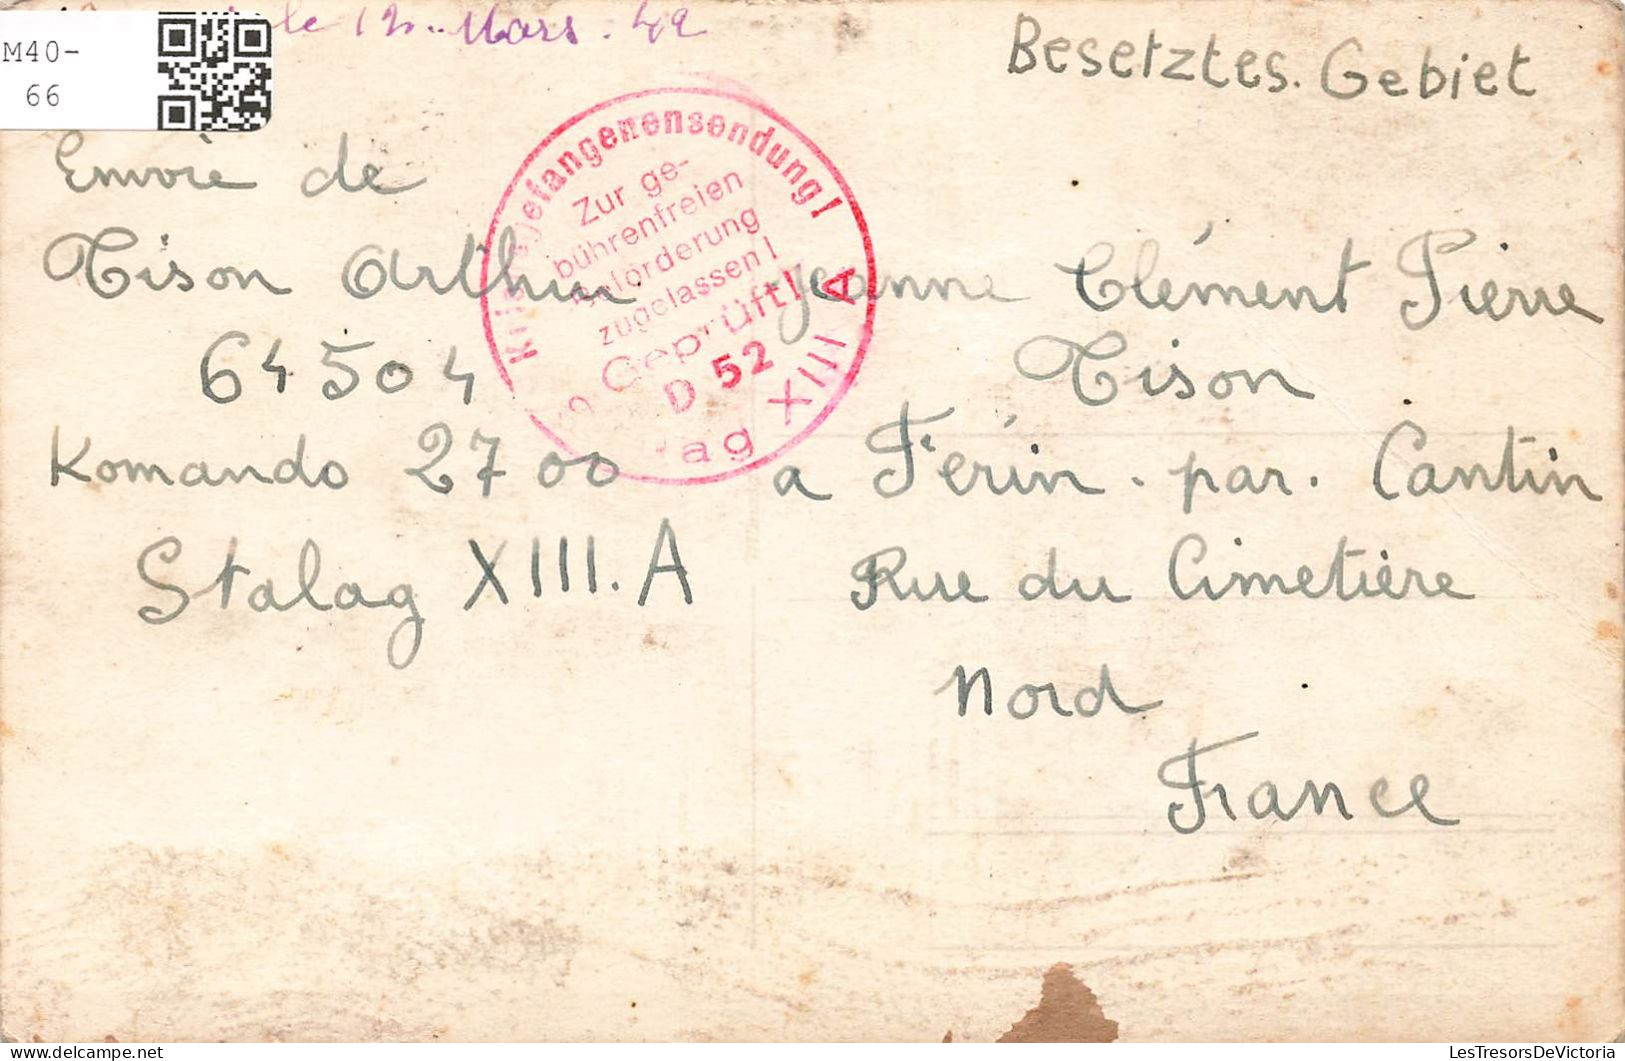 M40-
66
le 12.. Mars. 42
Besetztes. Gebiet
Envoie de
Tison Arthur
64504
Komando 2700
Stalag XIII. A
Kriegsgefangenensendung!
Zur ge-
bührenfreien
Beförderung
zugelassen!
Geprüft!
D 52
Stalag XIII A
Jeanne Clément Pierre
Tison
a Férin. par. Cantin
Rue du Cimetière
Nord
France
LesTresorsDeVictoria